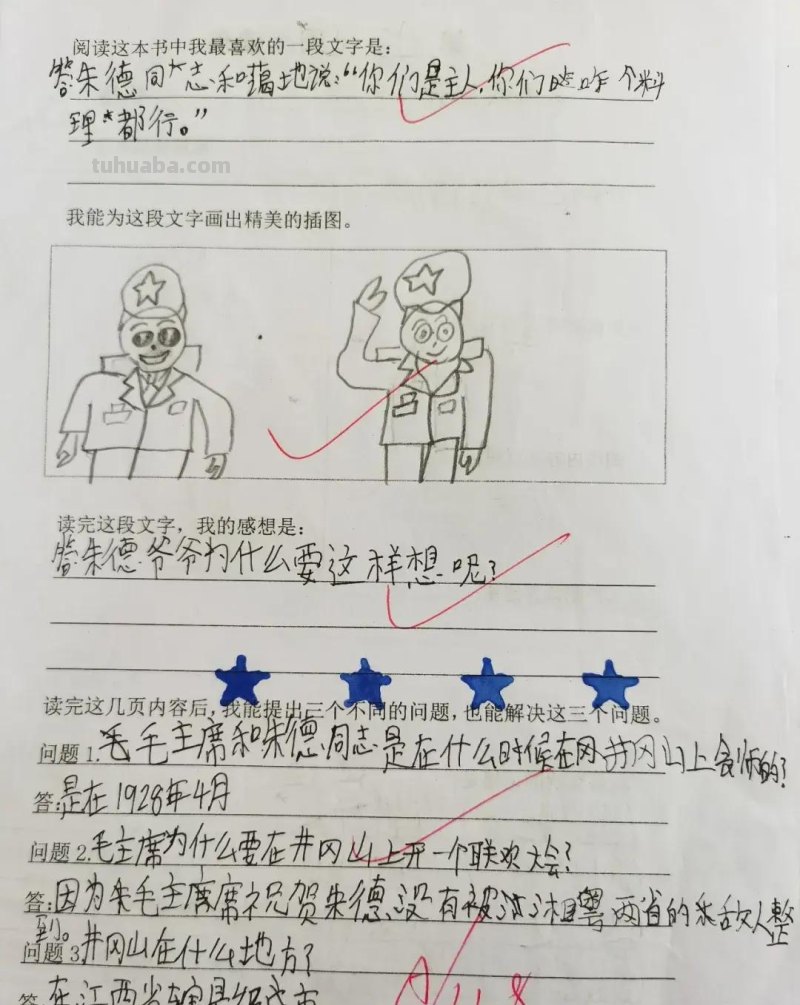 阅读这本书中我最喜欢的一段文字是：
答朱德同志和蔼地说：“你们是主人，你们咋个料
理都行。”
tuhuaba.com
我能为这段文字画出精美的插图。
读完这段文字，我的感想是：
答：朱德爷爷为什么要这样想呢？
读完这几页内容后，我能提出三个不同的问题，也能解决这三个问题。
问题1.毛毛主席和朱德同志是在什么时候在冈井冈山上会师的？
答：是在1928年4月
问题2.毛主席为什么要在井冈山上开一个联欢大会？
答：因为朱毛主席席祝贺朱德没有被湘粤两省的敌人整
到。
问题3井冈山在什么地方？
答在江西省